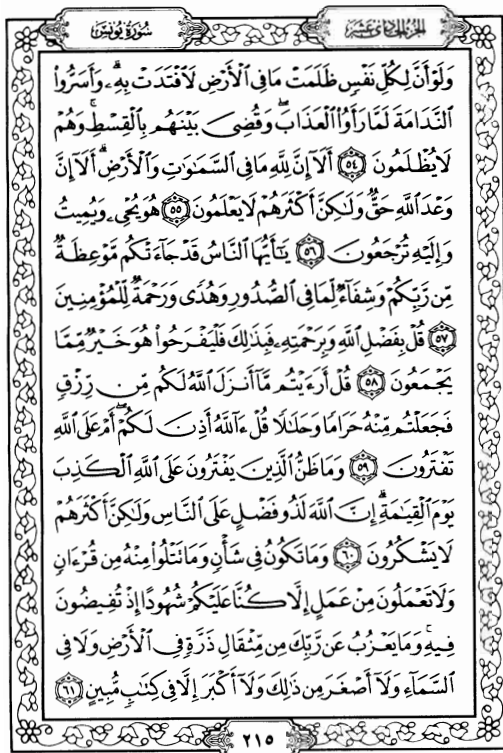 سُورَةُ يُونُسَ
الجزء الحادي عشر
وَلَوْ أَنَّ لِكُلِّ نَفْسٍ ظَلَمَتْ مَا فِي الْأَرْضِ لَافْتَدَتْ بِهِۦۗ وَأَسَرُّوا۟
النَّدَامَةَ لَمَّا رَأَوُا۟ الْعَذَابَۖ وَقُضِىَ بَيْنَهُم بِالْقِسْطِۚ وَهُمْ
لَا يُظْلَمُونَ ٥٤ أَلَآ إِنَّ لِلَّهِ مَا فِي السَّمَٰوَٰتِ وَالْأَرْضِۗ أَلَآ إِنَّ
وَعْدَ اللَّهِ حَقٌّ وَلَٰكِنَّ أَكْثَرَهُمْ لَا يَعْلَمُونَ ٥٥ هُوَ يُحْىِۦ وَيُمِيتُ
وَإِلَيْهِ تُرْجَعُونَ ٥٦ يَٰٓأَيُّهَا النَّاسُ قَدْ جَآءَتْكُم مَّوْعِظَةٌ
مِّن رَّبِّكُمْ وَشِفَآءٌ لِّمَا فِي الصُّدُورِ وَهُدًى وَرَحْمَةٌ لِّلْمُؤْمِنِينَ
٥٧ قُلْ بِفَضْلِ اللَّهِ وَبِرَحْمَتِهِۦ فَبِذَٰلِكَ فَلْيَفْرَحُوا۟ هُوَ خَيْرٌ مِّمَّا
يَجْمَعُونَ ٥٨ قُلْ أَرَءَيْتُم مَّآ أَنزَلَ اللَّهُ لَكُم مِّن رِّزْقٍ
فَجَعَلْتُم مِّنْهُ حَرَامًا وَحَلَٰلًا قُلْ ءَآللَّهُ أَذِنَ لَكُمْۖ أَمْ عَلَى اللَّهِ
تَفْتَرُونَ ٥٩ وَمَا ظَنُّ الَّذِينَ يَفْتَرُونَ عَلَى اللَّهِ الْكَذِبَ
يَوْمَ الْقِيَٰمَةِۗ إِنَّ اللَّهَ لَذُو فَضْلٍ عَلَى النَّاسِ وَلَٰكِنَّ أَكْثَرَهُمْ
لَا يَشْكُرُونَ ٦٠ وَمَا تَكُونُ فِي شَأْنٍ وَمَا تَتْلُوا۟ مِنْهُ مِن قُرْءَانٍ
وَلَا تَعْمَلُونَ مِنْ عَمَلٍ إِلَّا كُنَّا عَلَيْكُمْ شُهُودًا إِذْ تُفِيضُونَ
فِيهِۚ وَمَا يَعْزُبُ عَن رَّبِّكَ مِن مِّثْقَالِ ذَرَّةٍ فِي الْأَرْضِ وَلَا فِي
السَّمَآءِ وَلَآ أَصْغَرَ مِن ذَٰلِكَ وَلَآ أَكْبَرَ إِلَّا فِي كِتَٰبٍ مُّبِينٍ ٦١
٢١٥